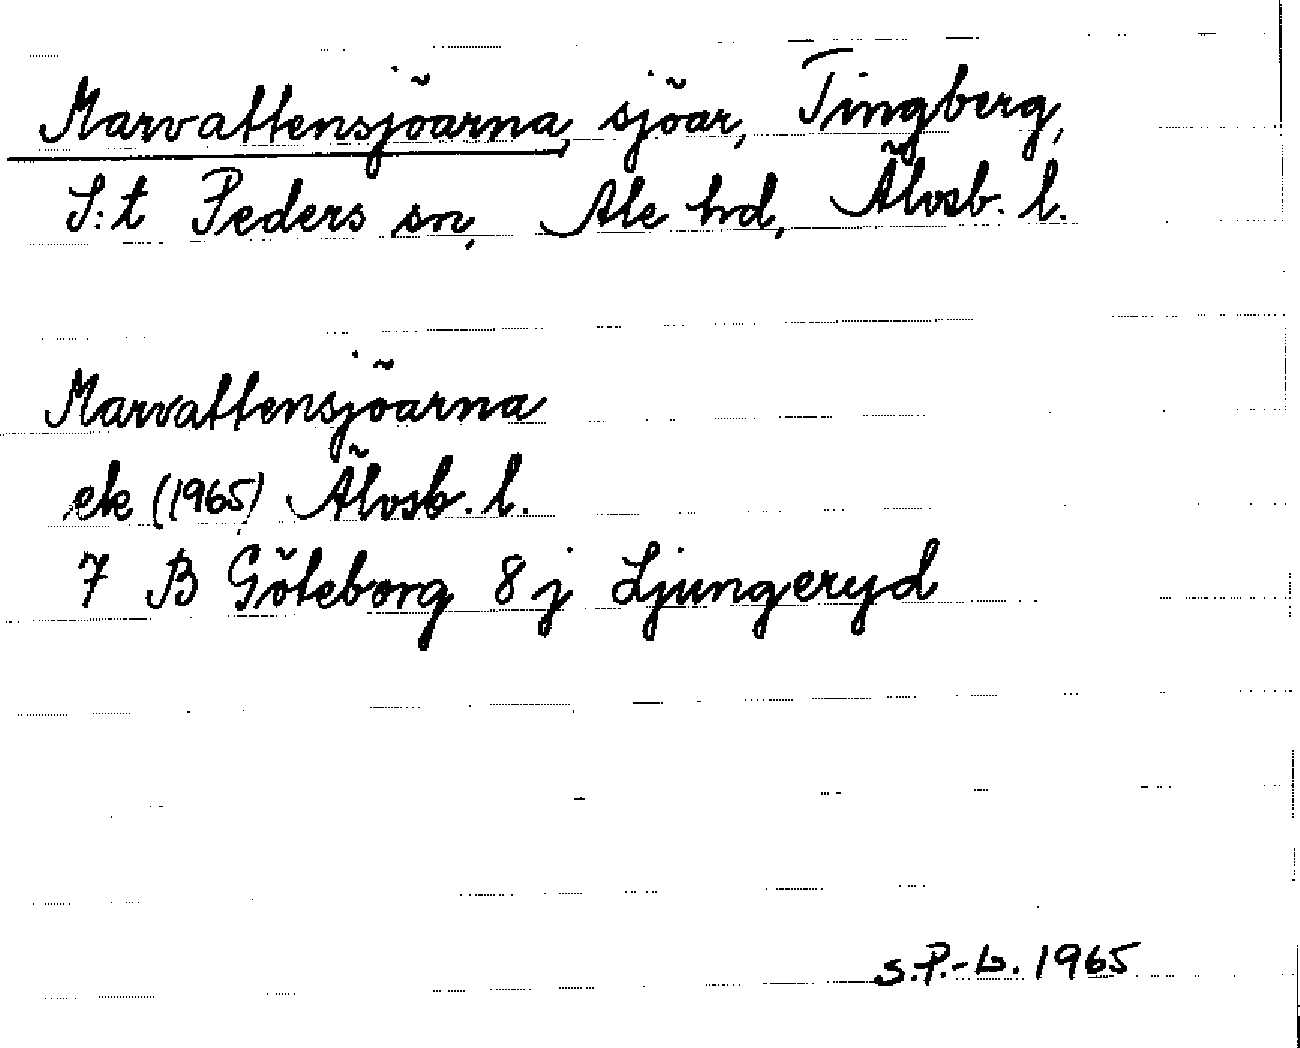 Marvattensjöarna, sjöar, Tingberg,
S:t Peders sn, Ale hd, Älvsb. l.
Marvattensjöarna
ek (1965) Älvsb. l.
7 B Göteborg 8 j Ljungeryd
S.P.-b. 1965